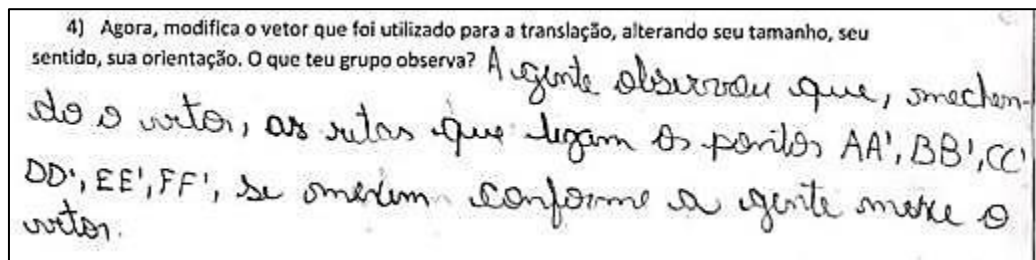 4) Agora, modifica o vetor que foi utilizado para a translação, alterando seu tamanho, seu
sentido, sua orientação. O que teu grupo observa? A gente observou que, mechen-
do o vetor, as retas que ligam os pontos AA', BB', CC'
DD', EE', FF', se mexem conforme a gente mexe o
vetor.